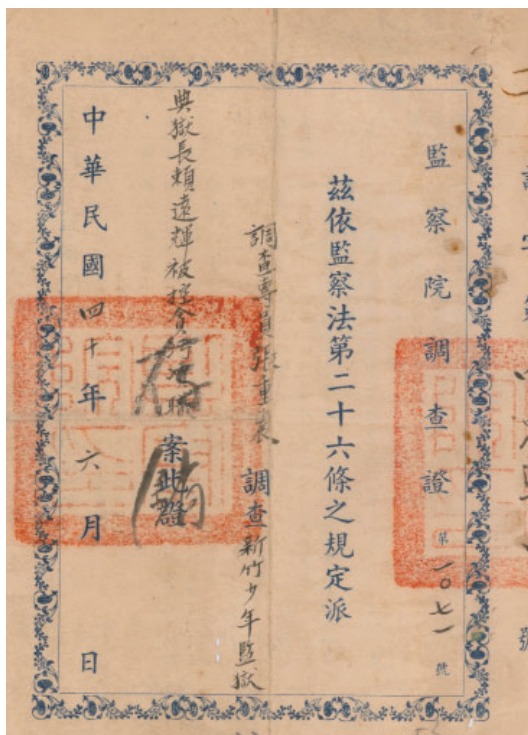 監察院調查證 第一〇七一號
茲依監察法第二十六條之規定派
調查專員張重 調查新竹少年監獄
典獄長賴遠輝被控貪污 案此證
中華民國四十年六月 日
號